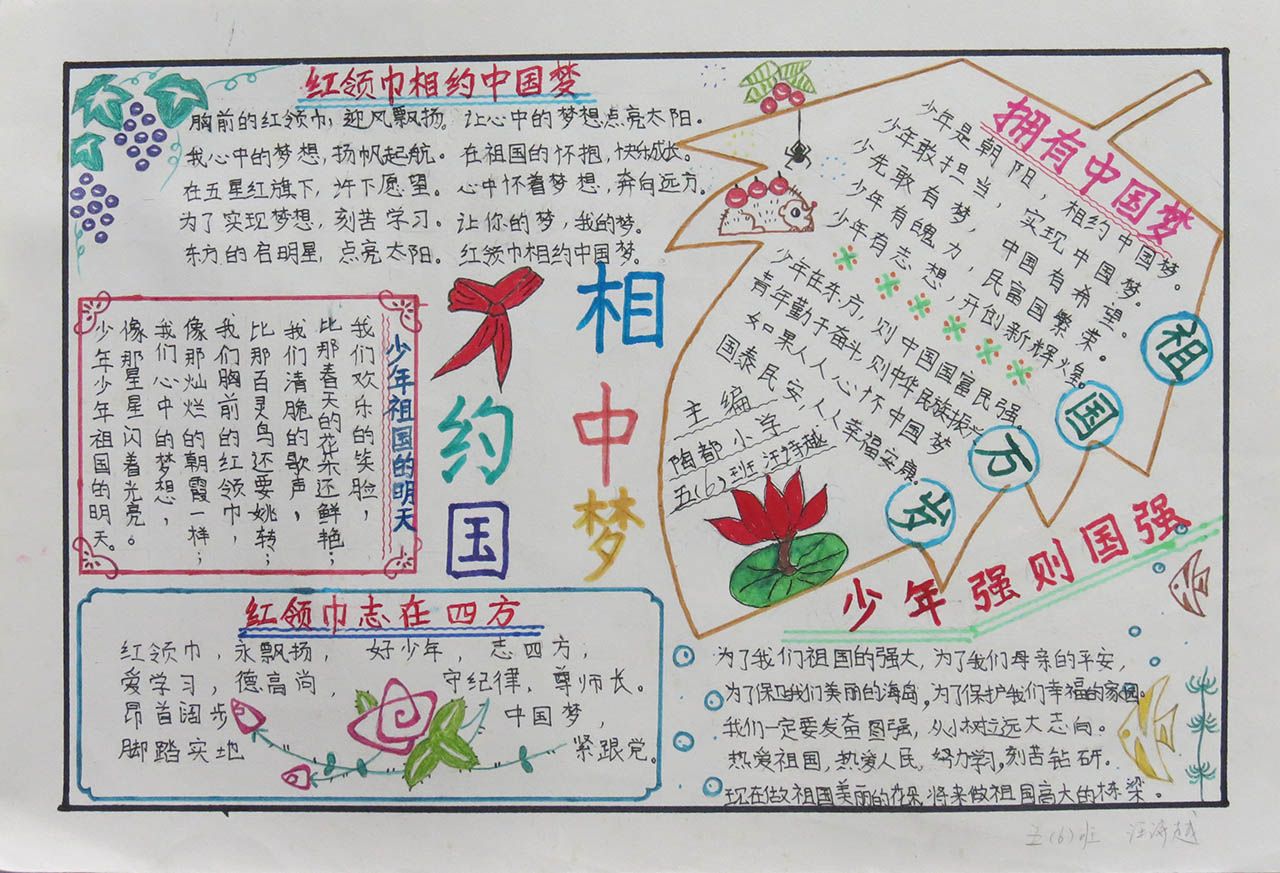 红领巾相约中国梦
胸前的红领巾,迎风飘扬。让心中的梦想点亮太阳。
我心中的梦想,扬帆起航。在祖国的怀抱,快乐成长。
在五星红旗下,许下愿望。心中怀着梦想,奔向远方。
为了实现梦想,刻苦学习。让你的梦,我的梦。
东方的启明星,点亮太阳。红领巾相约中国梦。
少年祖国的明天
我们欢乐的笑脸,
比那春天的花朵还鲜艳;
我们清脆的歌声,
比那百灵鸟还要婉转;
我们胸前的红领巾,
像那灿烂的朝霞一样;
我们心中的梦想,
像那星星闪着光亮。
少年少年祖国的明天。
相约
中国
梦
红领巾志在四方
红领巾,永飘扬,好少年,志四方;
爱学习,德高尚,守纪律,尊师长。
昂首阔步 中国梦,
脚踏实地 紧跟党。
拥有中国梦
少年是朝阳,相约中国梦。
少年敢担当,实现中国梦。
少先敢有梦,中国有希望。
少年有魄力,民富国繁荣。
少年有志想,开创新辉煌。
少年在东方,则中国国富民强。
青年勤于奋斗,则中华民族振兴。
如果人人心怀中国梦
国泰民安,人人幸福安康。
主编
陶都小学
五(6)班汪诗越
祖国万岁
少年强则国强
为了我们祖国的强大,为了我们母亲的平安,
为了保卫我们美丽的海岛,为了保护我们幸福的家园。
我们一定要发奋图强,从小树立远大志向。
热爱祖国,热爱人民,努力学习,刻苦钻研.
现在做祖国美丽的花朵 将来做祖国高大的栋梁。
五(6)班 汪诗越